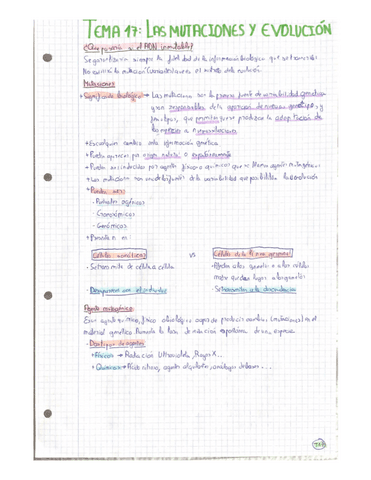 TEMA 17: LAS MUTACIONES Y EVOLUCIÓN
¿Que pasaría si el ADN inmutable?
Se garantizaría siempre la fidelidad de la información biológica que se transmite
No existiría la mutación
Mutaciones
Significado biológico → Las mutaciones son la primera fuente de variabilidad genética
gran responsables de la aparición de nuevos genotipos, y
fenotipos, que permiten
la especie a
Es cualquier cambio en la información genética
Pueden aparecer por origen natural o espontáneamente
Pueden ser inducidos por agentes físicos o químicos que se llaman agentes mutagénicos
Las mutaciones son de la variabilidad que posibilitan la evolución
Pueden ser:
- Puntuales o génicas
- Cromosómicas
- Genómicas
Pueden ser en:
Células somáticas VS Células de la línea germinal
- Se transmite de célula a célula
- Afecta a los gametos o a las células
madre que dan lugar a los gametos
- Desaparecen con el individuo
- Se transmiten a la descendencia
Agente mutagénico
Es un agente químico, físico o biológico capaz de producir cambios (mutaciones) en el
material genético. Aumenta la tasa de mutación espontánea de una especie
- Dos tipos de agentes
Físicos → Radiación Ultravioleta, Rayos X...
Químicos → Ácido nitroso, agentes alquilantes, análogos de bases...